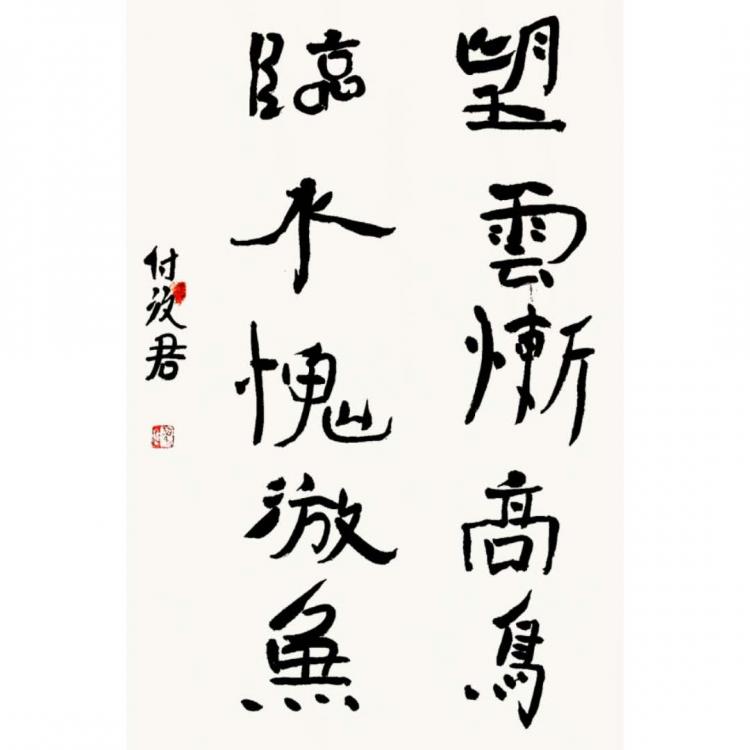 望雲慚高鳥
臨水愧游魚
付君